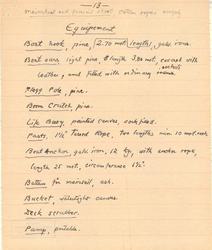 - 13 -
Equipement
Boat hook, pine, (2.70 mot. length), galv. iron.
Boat oars, light pine, length 3.80 mot. except with
leather, and fitted with ordinary
Flagg Pole, pine.
Boom Crutch pine
Life Buoy, painted canvas, cork filled.
Tarred Rope, two lengths min 10 mot. each
Boat Anchor galv. iron, 12 kg, with anchor rope,
length 25 mot, circumference
Battens for mainsail, ash.
Bucket, watertight canvas.
Deck scrubber.
Pump, portable.